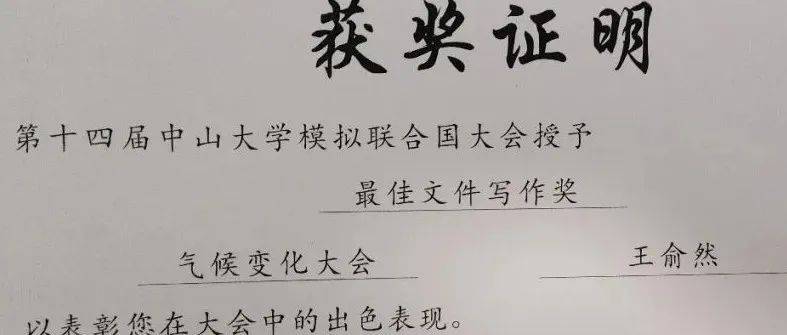 获奖证明
第十四届中山大学模拟联合国大会授予
最佳文件写作奖
气候变化大会 王俞然
以表彰您在大会中的出色表现。